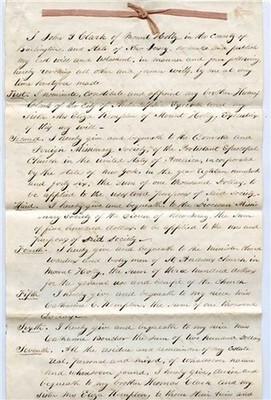 I John J Clark of Mount Holly in the County of
Burlington, and State of New Jersey, do make and publish
my last will and testament, in manner and form following,
hereby revoking all other and former wills, by me at any
time heretofore made.
First. I nominate, constitute and appoint my brother Thomas
Clark of the City of Philadelphia Executor and my
Sister Eliza Hampton of Mount Holly, Executrix
of this my will
Second. I hereby give and bequeath to the Domestic and
Foreign Missionary Society of the Protestant Episcopal
Church in the United States of America, incorporated
by the State of New York in the year Eighteen hundred
and forty six, the sum of one thousand dollars, to
be applied to the use and purposes of said Society
Third. I hereby give and bequeath to the Diocesan Missionary
Society of the Diocese of New Jersey, the sum
of five hundred dollars to be applied to the use and
purposes of said Society
Fourth. I hereby give and bequeath to the
Wardens and Vestry men of St. Andrews Church in
Mount Holly, the Sum of three hundred dollars
for the general use and benefit of the Church
Fifth. I hereby give and bequeath to my niece
C. Hampton the sum of one thousand
dollars
Sixth. I hereby give and bequeath to my niece
Catharine the sum of two hundred dollars
Seventh. All the residue and remainder of my Estate
real, personal and mixed, of whatsoever name
and whatsoever found, I hereby give, devise and
bequeath to my brother Thomas Clark and my
Sister Eliza Hampton, to them their heirs and